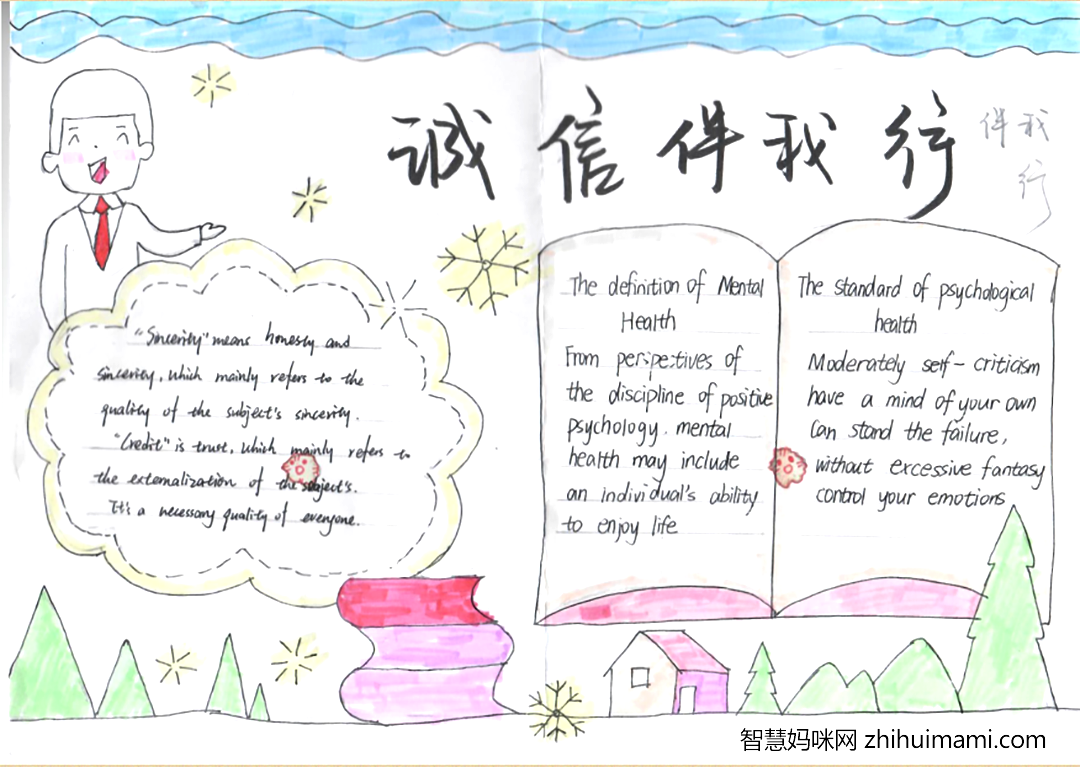 诚信伴我行
伴我
行
"Sincerity" means honesty and
sincerity, which mainly refers to the
quality of the subject's sincerity.
"Credit" is trust, which mainly refers to
the externalization of the subject's.
It's a necessary quality of everyone.
The definition of Mental
Health
From perspectives of
the discipline of positive
psychology. mental
health may include
an individual's ability
to enjoy life
The standard of psychological
health
Moderately self-criticism
have a mind of your own
Can stand the failure,
without excessive fantasy
control your emotions
智慧妈咪网 zhihuimami.com